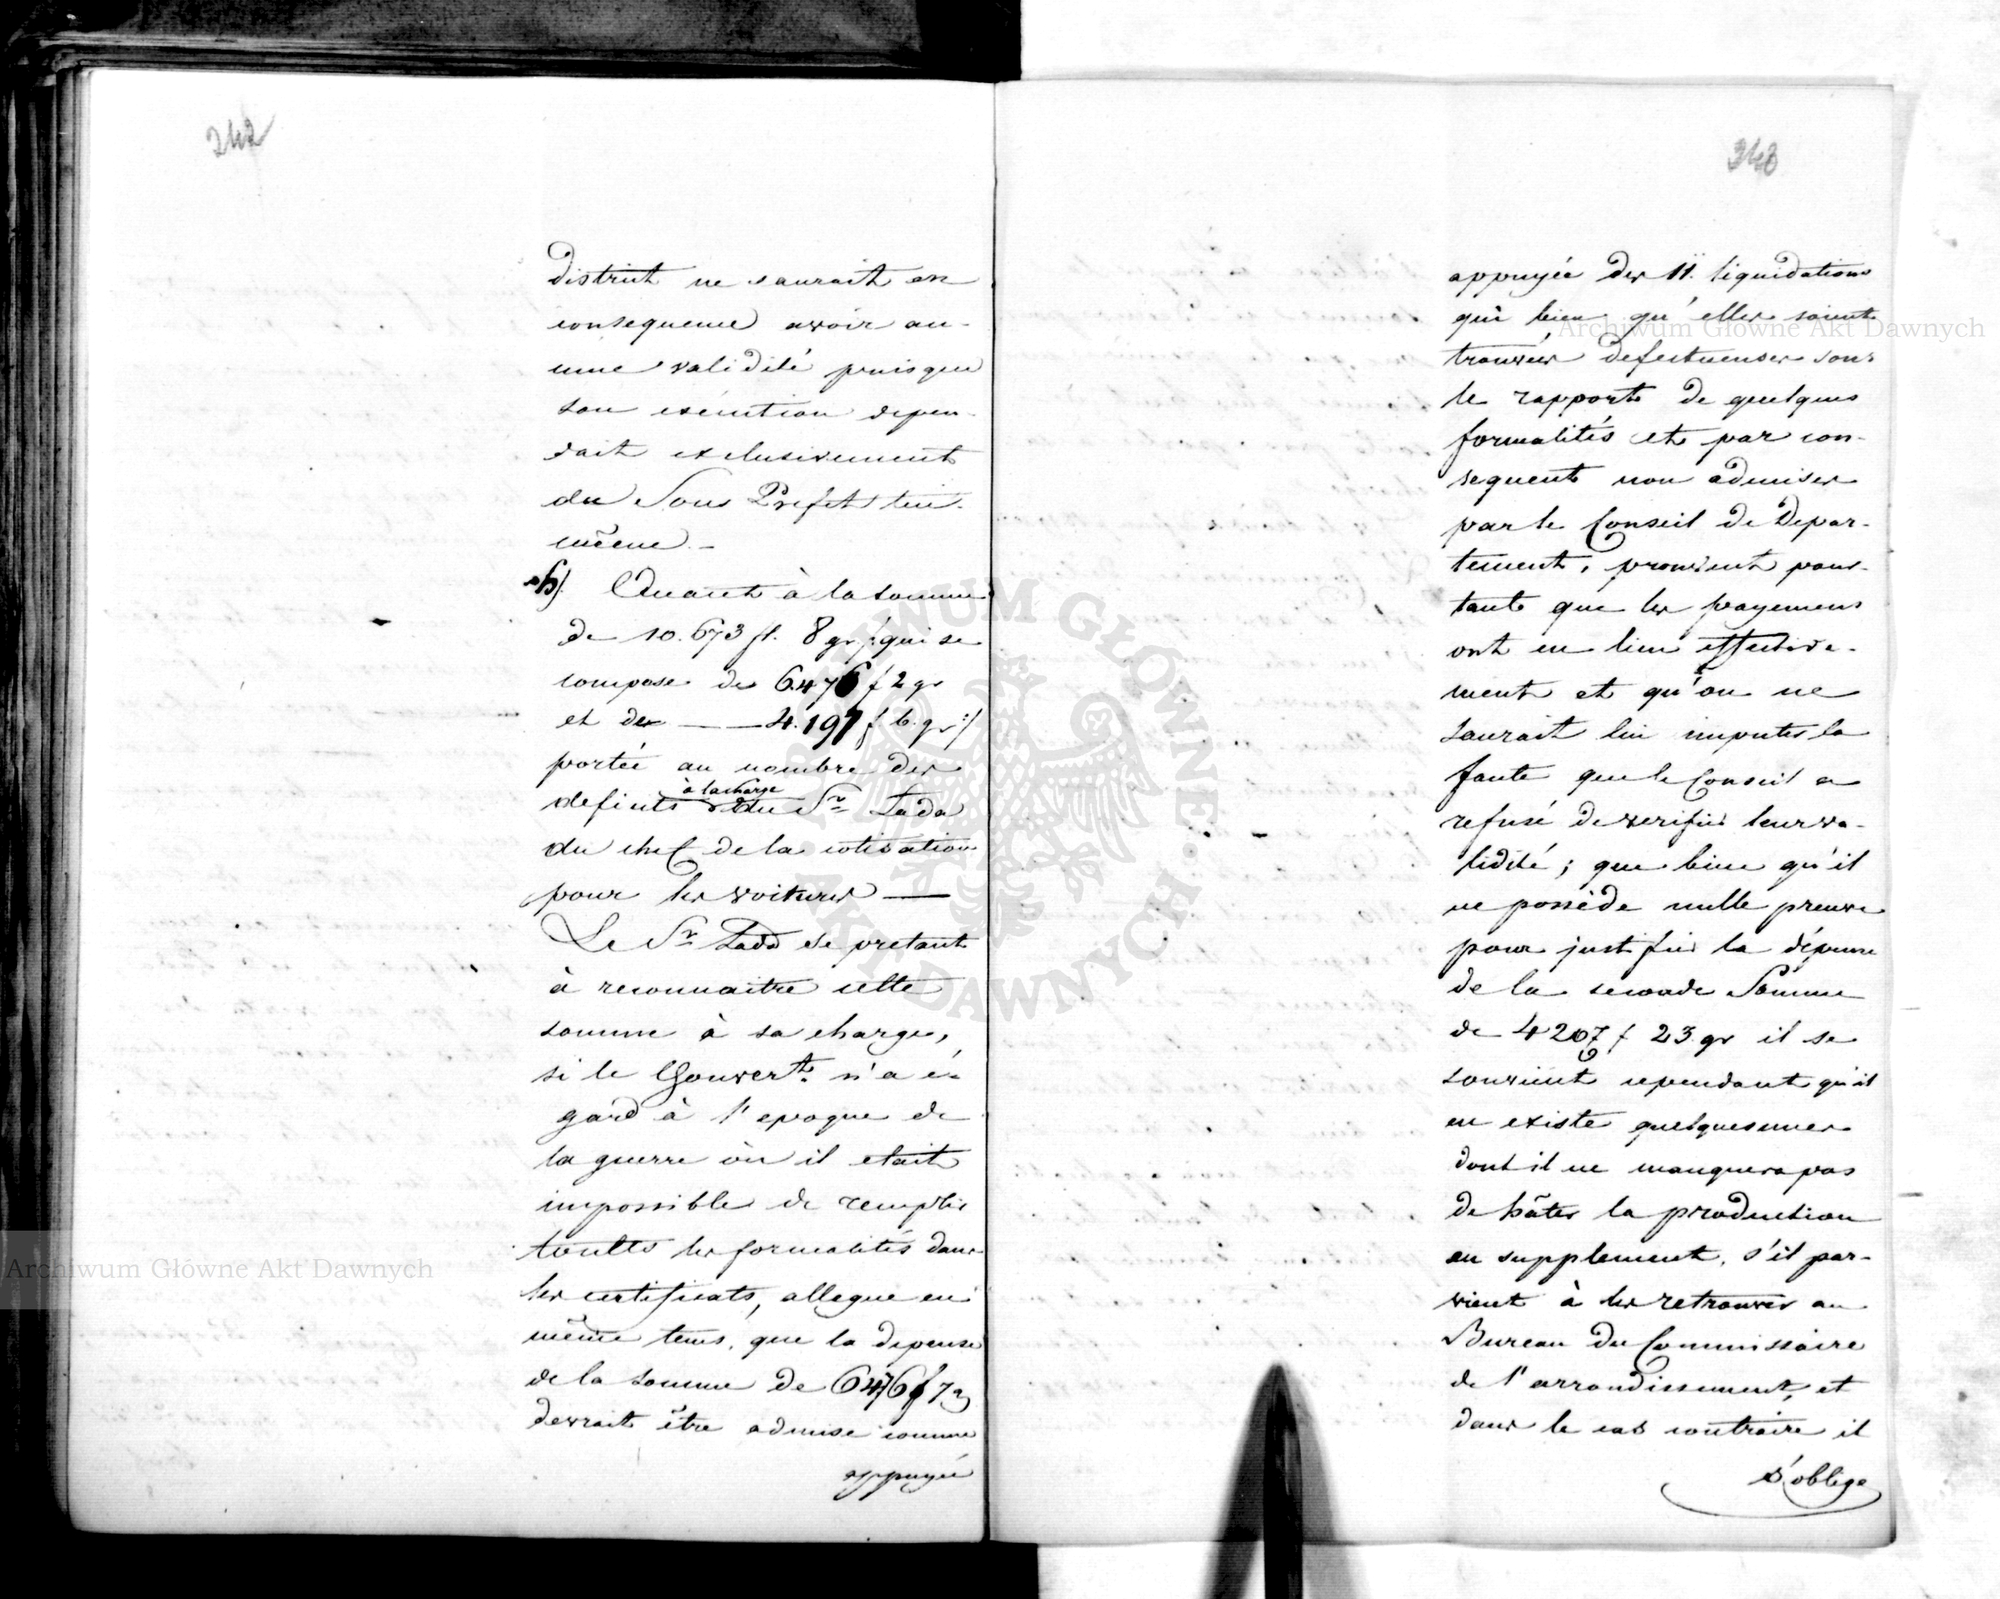 242
district ne saurait en
consequence avoir au-
cune validité puisque
son execution depen-
dait exclusivement
du Sous Prefet lui-
même. —
h). Quant à la somme
de 10.673 fl. 8 gr /: qui se
compose de 6476 f 2 gr
et de — — 4.197 f 6. gr :/
portée au nombre des
deficits à la charge du Sr. Lada
du chef de la cotisation
pour les voitures —
Le Sr. Lada se pretant
à reconnaitre cette
somme à sa charge,
si le Gouvert. n'a é-
gard à l'epoque de
la guerre où il etait
impossible de remplir
toutes les formalités dans
les certificats, allegue en
même tems, que la depense
de la somme de 6476 f 7 g
devrait être admise comme
appuyée
343
appuyée des 11. liquidations
qui bien qu'elles soient
trouvées defectueuses sous
le rapport de quelques
formalités et par con-
sequent non admises
par le Conseil de Depar-
tement, prouvent pour-
tant que les payemens
ont eu lieu effective-
ment et qu'on ne
saurait lui imputer la
faute que le Conseil a
refusé de verifier leur va-
lidité; que bien qu'il
ne possède nulle preuve
pour justifier la dépense
de la seconde Somme
de 4207 f 23. gr il se
souvient cependant qu'il
en existe quelques unes
dont il ne manquera pas
de hâter la production
en supplement, s'il par-
vient à les retrouver au
Bureau du Commissaire
de l'arrondissement, et
dans le cas contraire il
s'oblige
Archiwum Główne Akt Dawnych
Archiwum Główne Akt Dawnych
ARCHIWUM GŁÓWNE AKT DAWNYCH